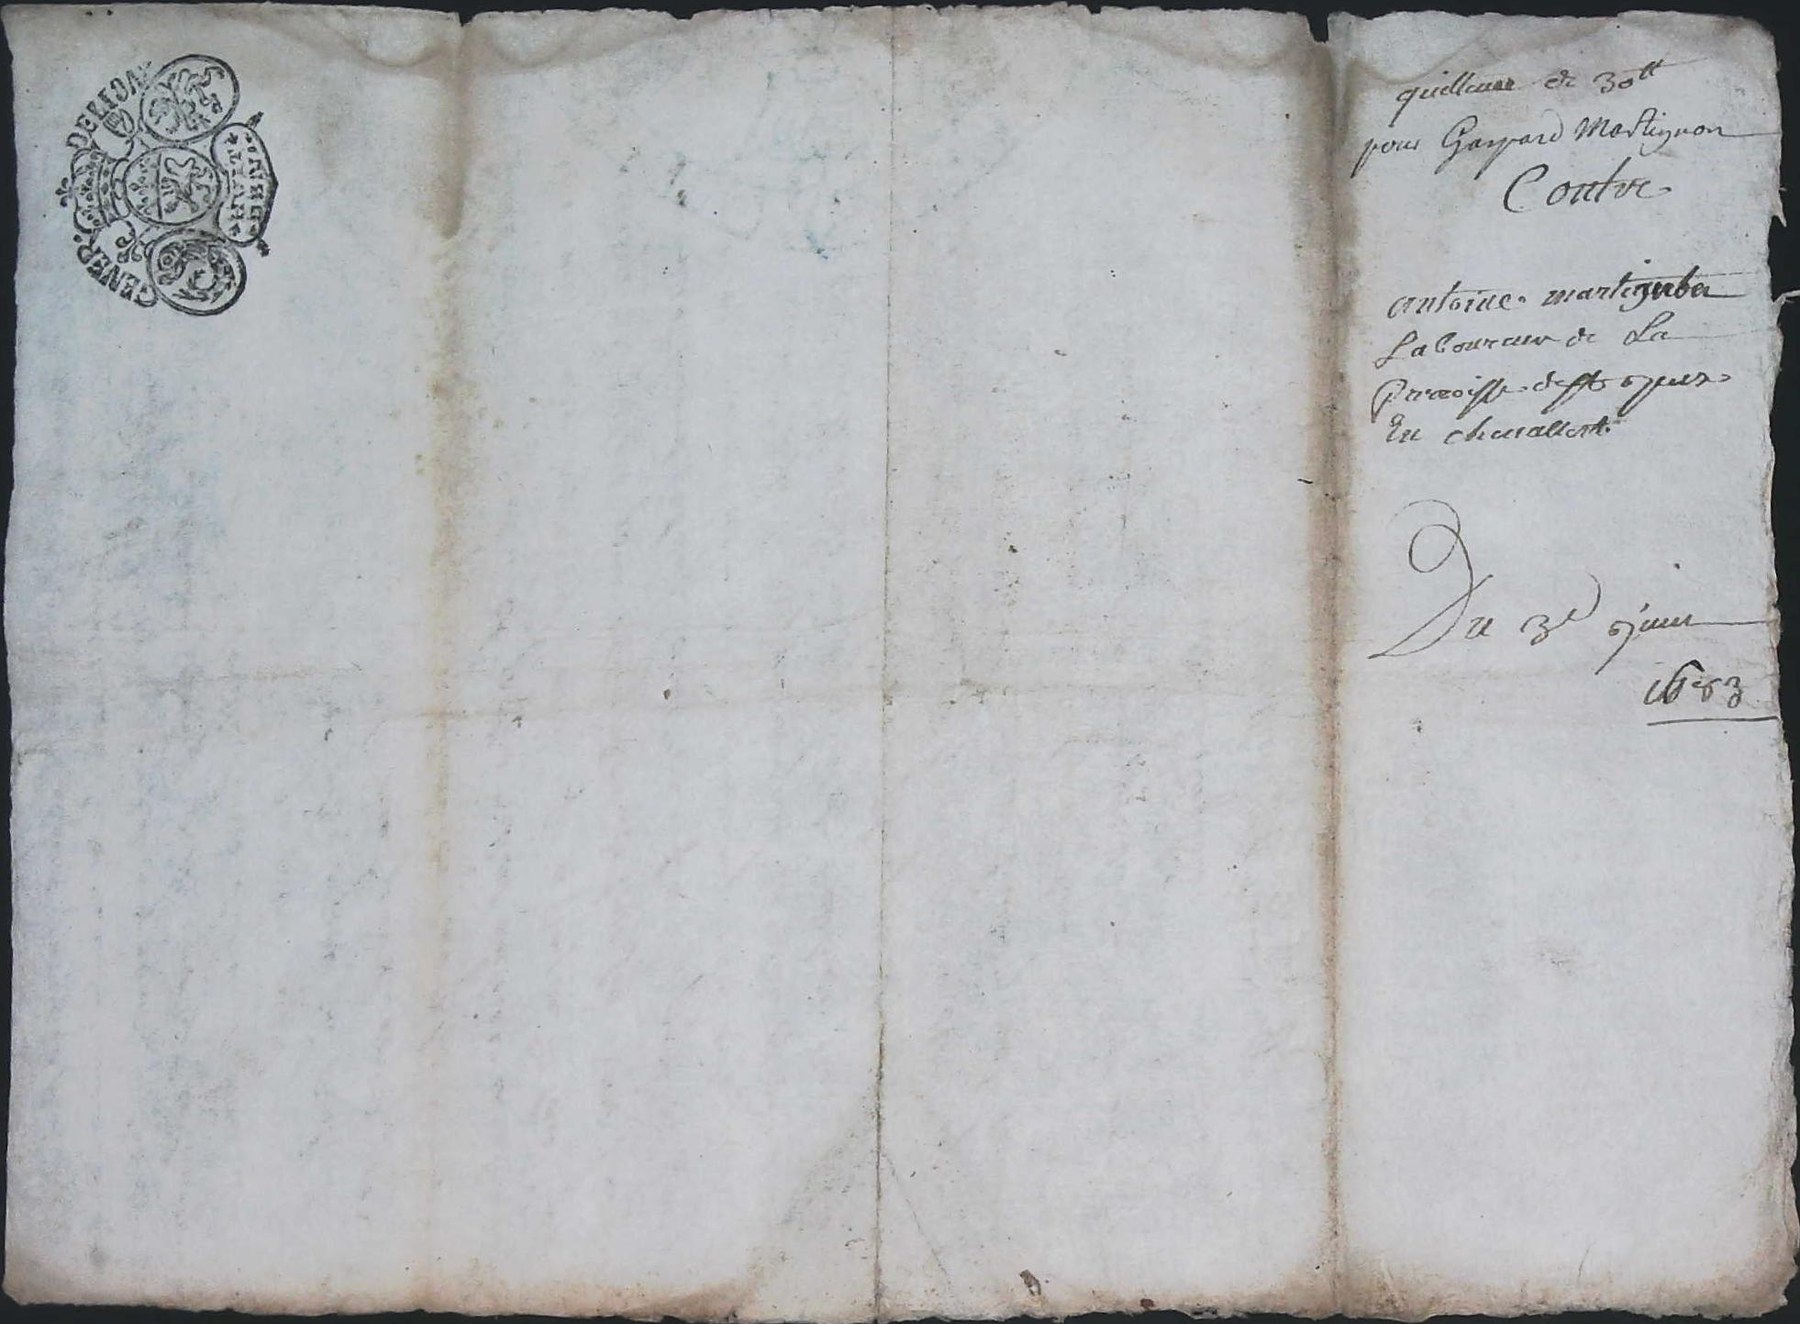 GENER. DE LION
HVIT
DEN.
quittance de 30tt
pour Gaspard Martignon
Contre
antoine martignon
Laboureur de La
parroisse de St
En chevallert
Du 3e juin
1683